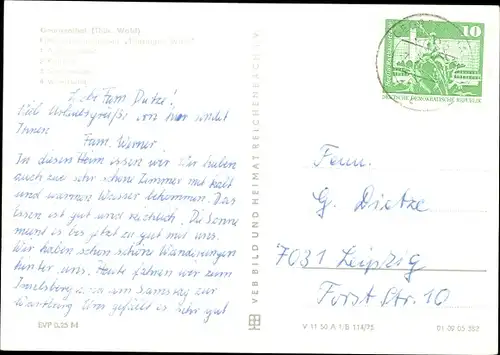 Georgenthal (Thür. Wald)
Liebe Fam. Dietze!
Viel Urlaubsgrüße von hier sendet
Ihnen
Fam. Werner.
In diesem Heim essen wir. Wir haben
auch zwe sehr schöne Zimmer mit kalt
und warmen Wasser bekommen. Das
Essen ist gut und reichlich. Die Sonne
meint es bis jetzt zu gut mit uns.
Wir haben schon schöne Wanderungen
hinter uns. Heute fahren wir zum
Inselsberg u. am Samstag zur
Wartburg. Uns gefällt es sehr gut
EVP 0,25 M
VEB BILD UND HEIMAT REICHENBACH I. V.
10
DEUTSCHE DEMOKRATISCHE REPUBLIK
Fam.
G. Dietze
7031 Leipzig
Forst Str. 10
V 11 50 A 1/B 114/75
01 09 05 352